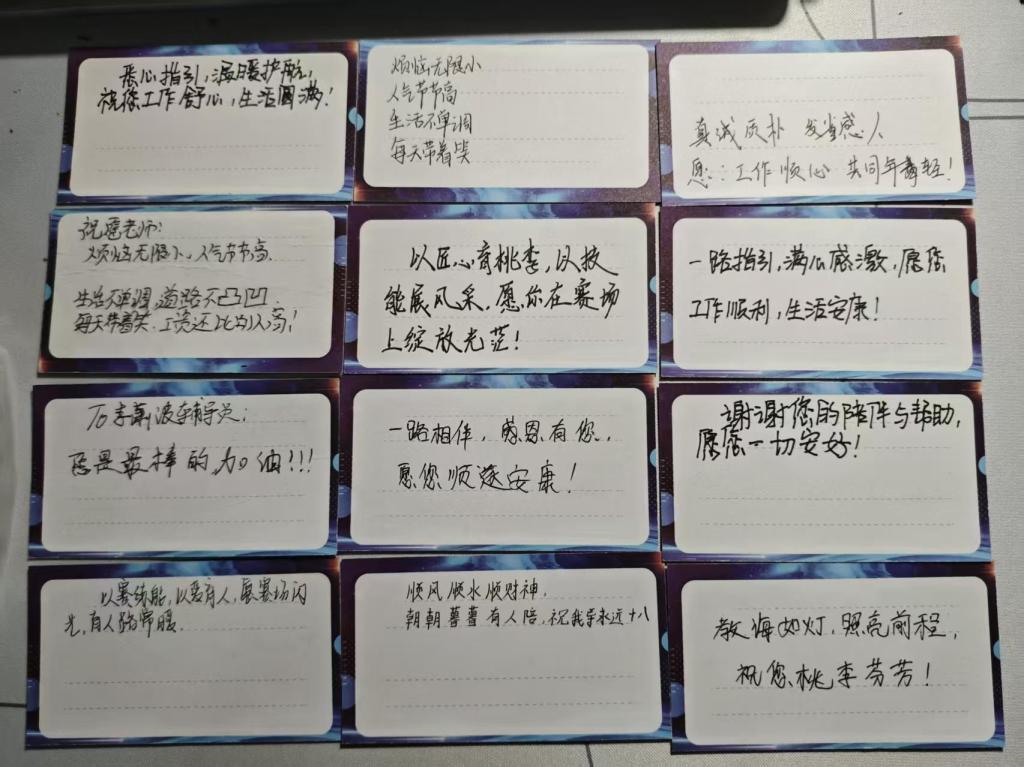 悉心指引，温暖护航，
祝您工作舒心，生活圆满！
烦恼无限小
人气节节高
生活不单调
每天带着笑
真诚质朴 发省感人
愿：工作顺心 共同年轻！
祝愿老师：
烦恼无限小，人气节节高.
生活不单调 道路不凸凹.
每天带着笑. 工资还比别人高！
以匠心育桃李，以技
能展风采，愿你在赛场
上绽放光茫！
一路指引，满心感激，愿您
工作顺利，生活安康！
辅导员：
您是最棒的，加油!!!
一路相伴，感恩有您，
愿您顺遂安康！
谢谢您的陪伴与帮助，
愿您一切安好！
以赛练能，以爱育人，赛场闪
光，育人路常暖.
顺风顺水顺财神.
朝朝暮暮有人陪，祝我导永远十八
教诲如灯，照亮前程，
祝您桃李芬芳！